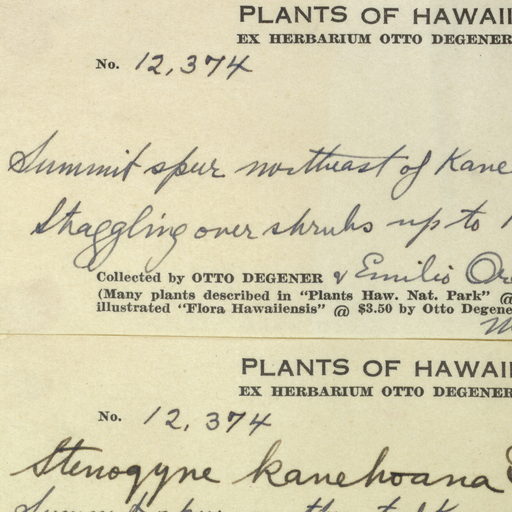 PLANTS OF HAWAII
EX HERBARIUM OTTO DEGENER
No. 12,374
Summit spur northeast of Kane
Straggling over shrubs up to
Collected by OTTO DEGENER & Emilio
(Many plants described in "Plants Haw. Nat. Park" @
illustrated "Flora Hawaiiensis" @ $3.50 by Otto Degene
PLANTS OF HAWAII
EX HERBARIUM OTTO DEGENER
No. 12,374
Stenogyne kanehoana
Summit spur